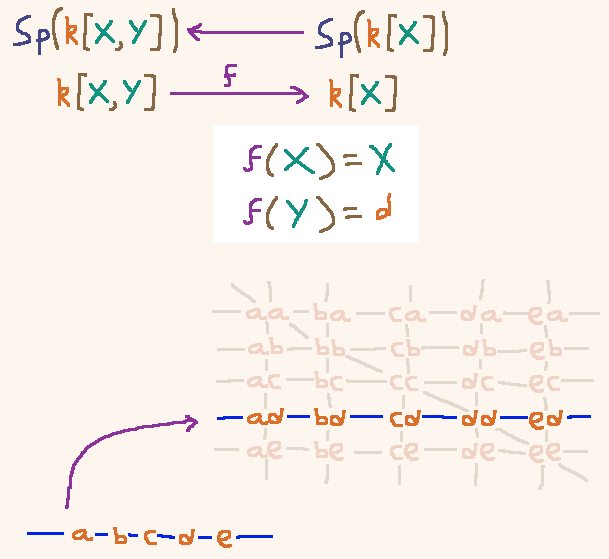 Sp(k[X,Y]) ← Sp(k[X])
f
k[X,Y] → k[X]
f(X)=X
f(Y)=d
aa ba ca da ea
ab bb cb db eb
ac bc cc dc ec
ad bd cd dd ed
ae be ce de ee
a b c d e